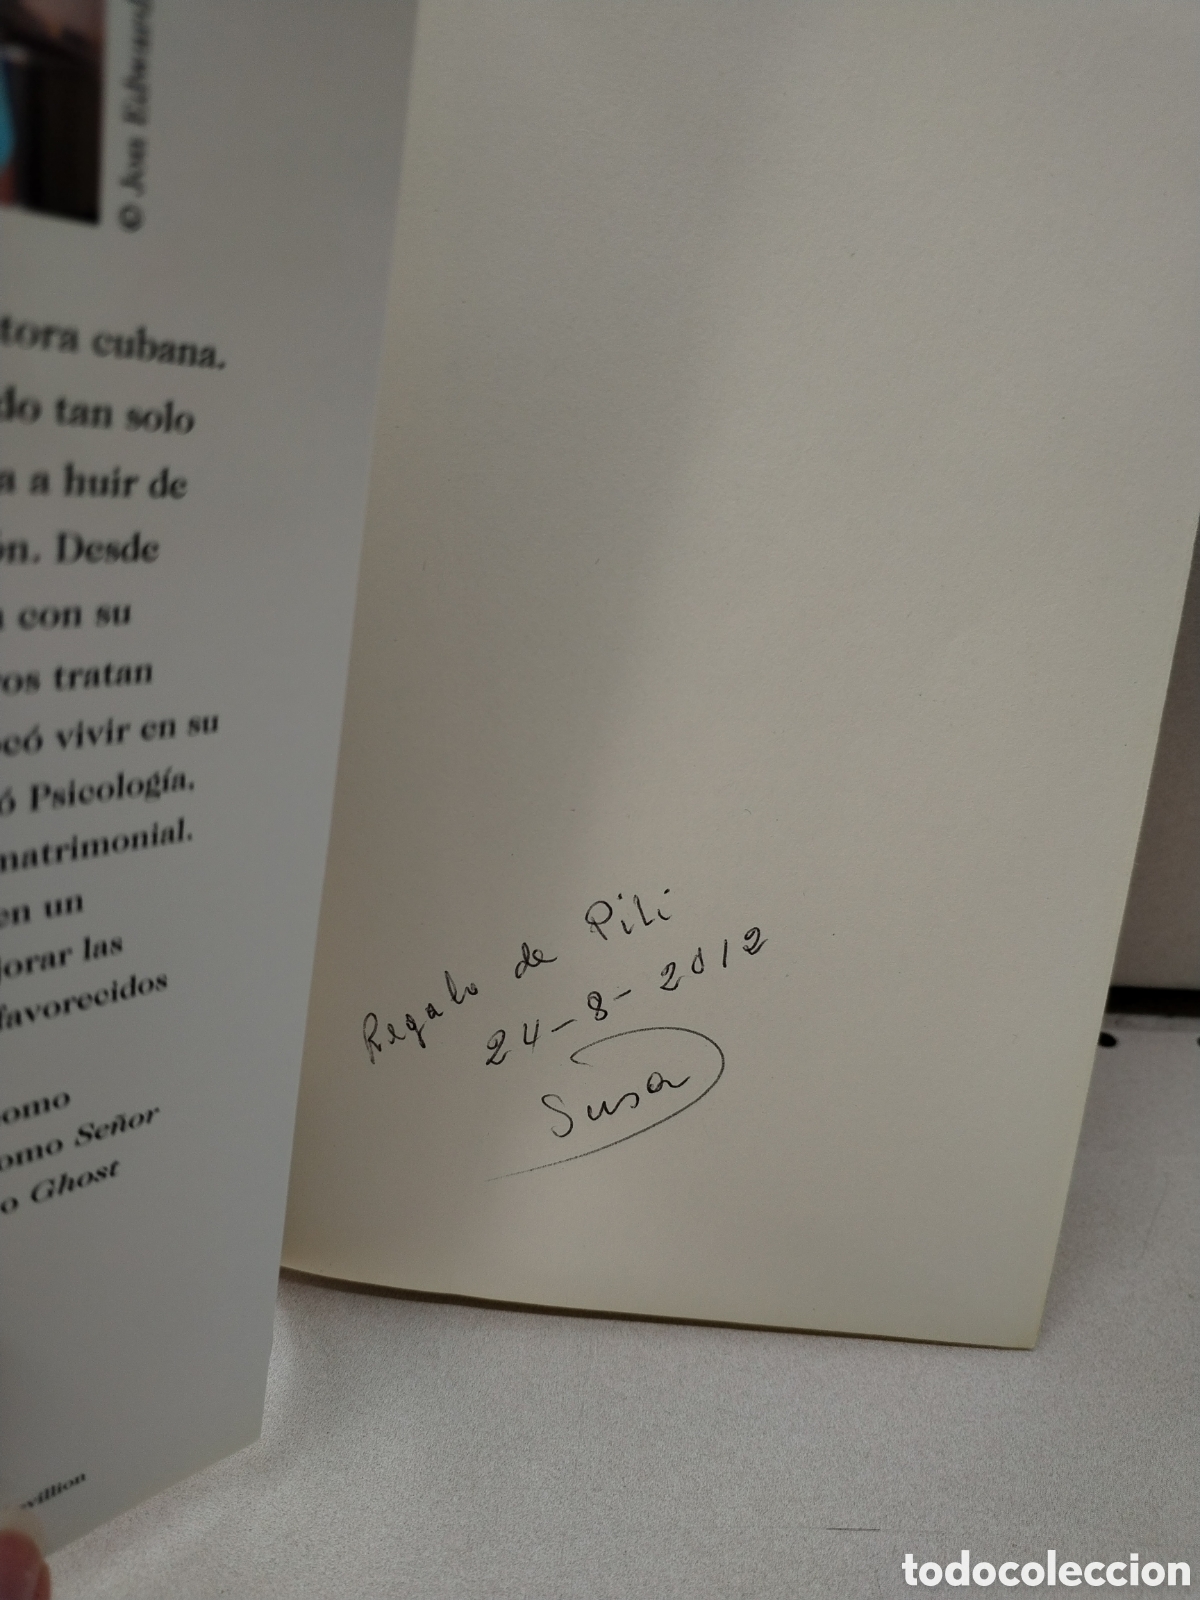 © Jon Edward
tora cubana.
do tan solo
a a huir de
ón. Desde
con su
os tratan
có vivir en su
ó Psicología.
matrimonial.
en un
jorar las
favorecidos
omo
omo Señor
o Ghost
villion
Regalo de Pili
24-8-2012
Susa
todocoleccion